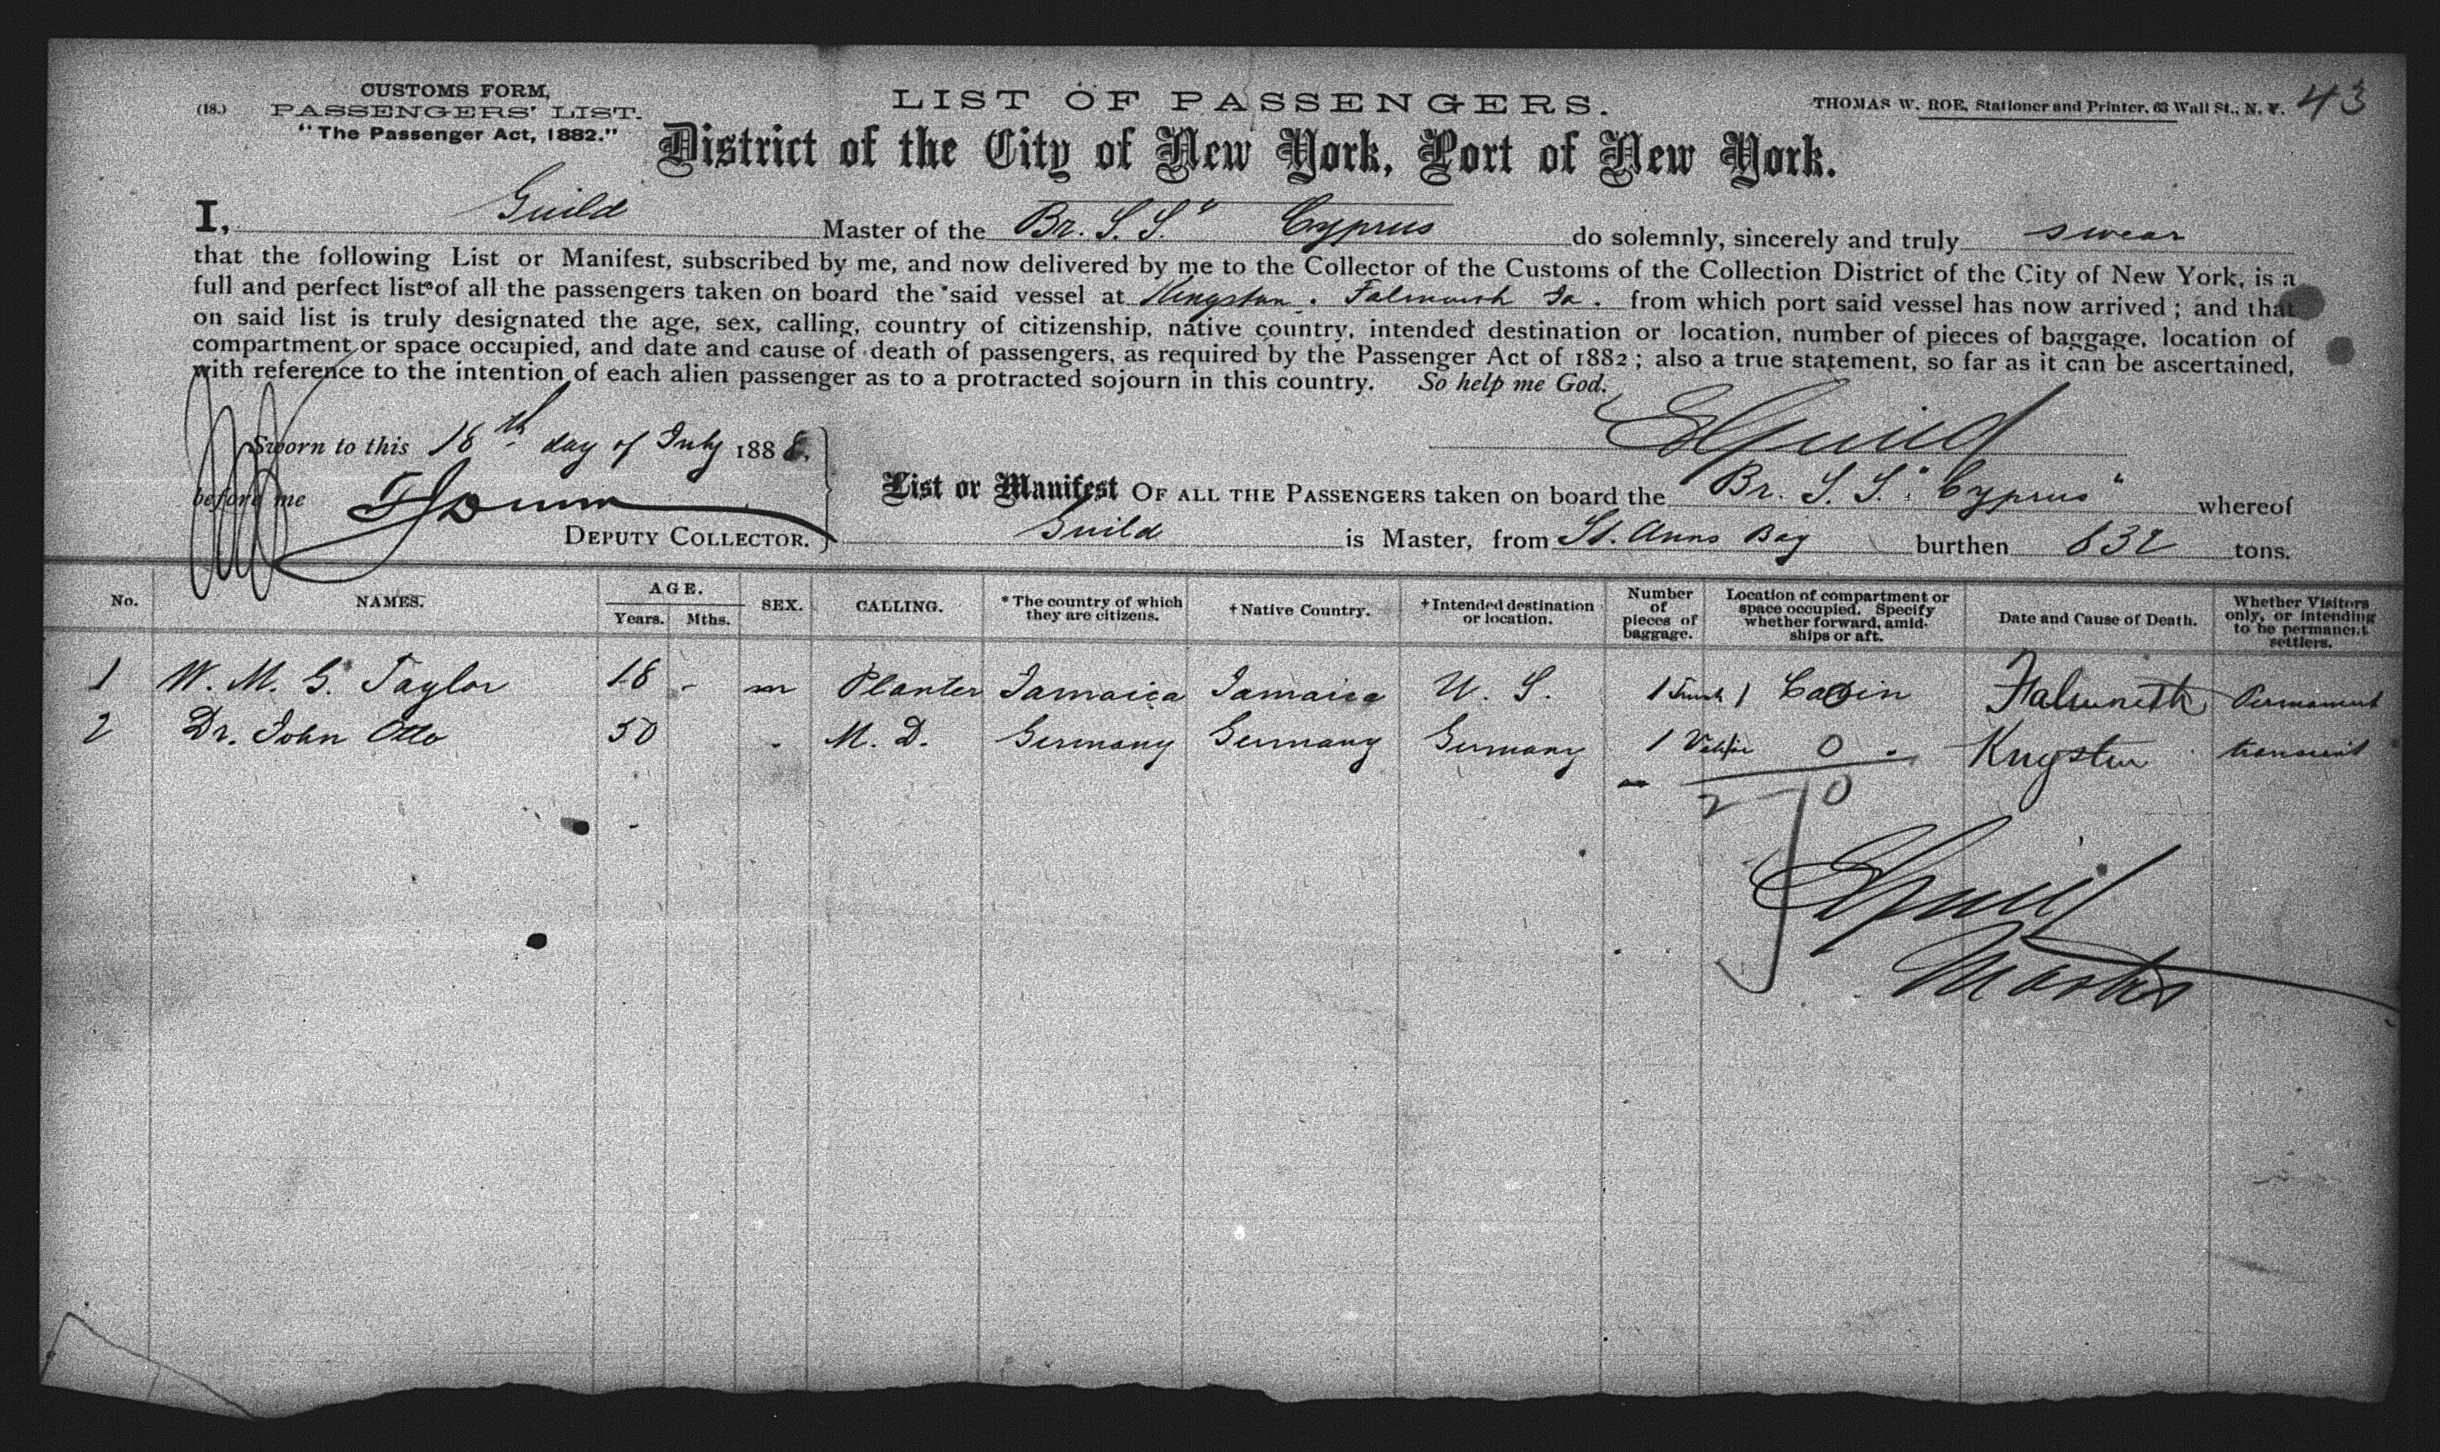 CUSTOMS FORM,
(18.) PASSENGERS' LIST.
"The Passenger Act, 1882."
LIST OF PASSENGERS.
THOMAS W. ROE, Stationer and Printer, 63 Wall St., N. Y. 43
District of the City of New York, Port of New York.
I, Guild Master of the Br. S. S. " Cyprus do solemnly, sincerely and truly swear
that the following List or Manifest, subscribed by me, and now delivered by me to the Collector of the Customs of the Collection District of the City of New York, is a
full and perfect list of all the passengers taken on board the said vessel at Kingston . Falmouth Ja. from which port said vessel has now arrived; and that
on said list is truly designated the age, sex, calling, country of citizenship, native country, intended destination or location, number of pieces of baggage, location of
compartment or space occupied, and date and cause of death of passengers, as required by the Passenger Act of 1882; also a true statement, so far as it can be ascertained,
with reference to the intention of each alien passenger as to a protracted sojourn in this country. So help me God.
Sworn to this 18th day of July 1888.
before me
DEPUTY COLLECTOR.
EGuild
List or Manifest OF ALL THE PASSENGERS taken on board the Br. S. S. "Cyprus" whereof
Guild is Master, from St. Anns Bay burthen 832 tons.
No. NAMES. AGE. Years. Mths. SEX. CALLING. *The country of which they are citizens. †Native Country. †Intended destination or location. Number of pieces of baggage. Location of compartment or space occupied. Specify whether forward, amidships or aft. Date and Cause of Death. Whether Visitors only, or intending to be permanent settlers.
1 W. M. G. Taylor 18 - m Planter Jamaica Jamaica U. S. 1 Trunk 1 Cabin Falmouth Permanent
2 Dr. John Otto 50 M. D. Germany Germany Germany 1 0 Kingston transient
2 0
EGuild
Master